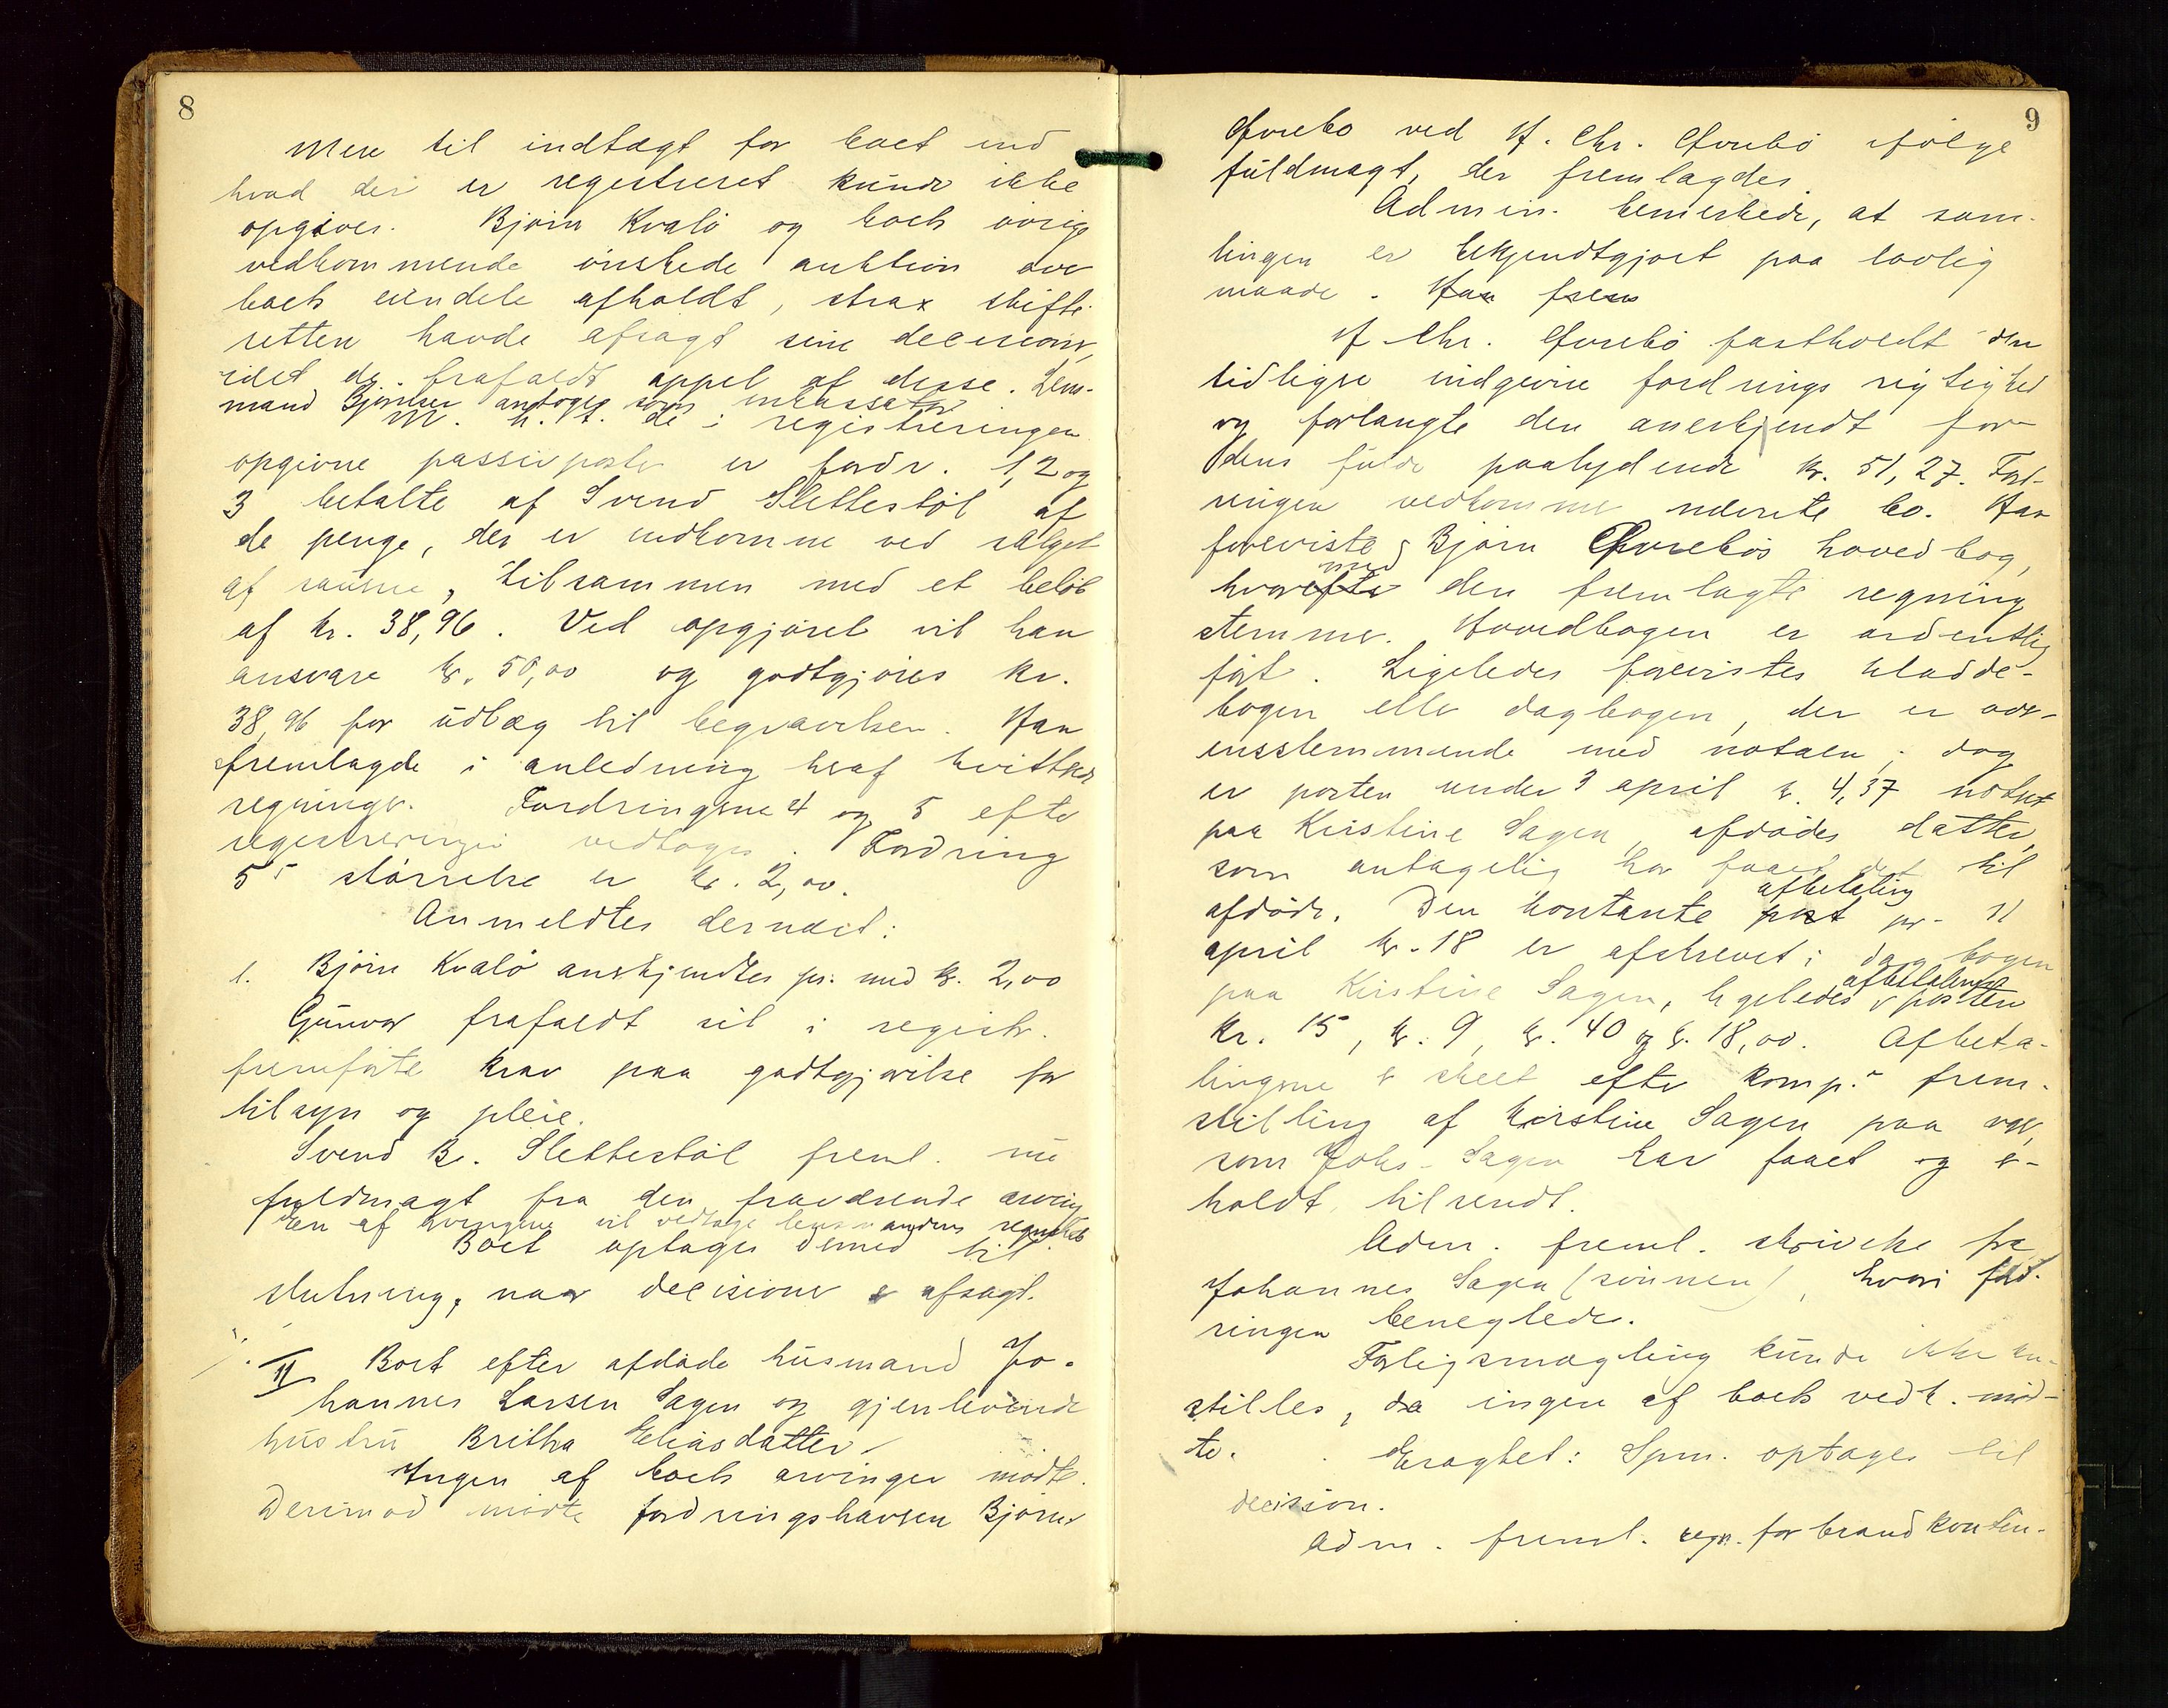 8
Mere til indtægt for boet end
hvad der er registreret kunde ikke
opgives. Bjørn Kvalø og boets øvrige
vedkommende ønskede auktion over
boets eiendele afholdt, strax skifte-
retten havde afsagt sine decisioner,
idet de frafaldt appel af disse. Lens-
mand antoges som
M. h. t. de i registreringen
opgivne passivposter er fordr. 1, 2 og
3 betalte af Svend Slettestøl af
de penge, der er indkomne ved salget
af sauene, tilsammen med et beløb
af kr. 38,96. Ved opgjøret vil han
ansvare kr. 50,00 og godtgjøres kr.
38,96 for udlæg til begravelsen. Han
fremlagde i anledning heraf kvitterte
regninger. Fordringerne 4 og 5 efter
registreringen vedtoges. Fordring
5s størrelse er kr. 2,00.
Anmeldtes dernæst:
1. Bjørn Kvalø anerkjendtes pr. med kr. 2,00
Gunvor frafaldt sit i registr.
fremførte krav paa godtgjørelse for
tilsyn og pleie.
Svend Br. Slettestøl freml. nu
fuldmagt fra den fraværende arving
En af arvingene vil vedtage lensmandens regnskab
Boet optages dermed til
slutning, naar decisioner er afsagt.
II Boet efter afdøde husmand Jo-
hannes Larsen Sagen og gjenlevende
hustru Britha Eliasdatter.
Ingen af boets arvinger mødte.
Derimod mødte fordringshaveren Bjørn
9
Øvrebø ved H. Chr. Øvrebø ifølge
fuldmagt, der fremlagdes.
Admin. bemerkede, at sam-
lingen er bekjendtgjort paa lovlig
maade. Han frem
H. Chr. Øvrebø fastholdt den
tidligere indgivne fordrings rigtighed
og forlangte den anerkjendt for
dens fulde paalydende kr. 51,27. Ford-
ringen vedkommer nævnte bo. Han
foreviste Bjørn Øvrebøs hovedbog,
hvorefter med den fremlagte regning
stemmer. Hovedbogen er ordentlig
ført. Ligeledes forevistes kladde-
bogen eller dagbogen, der er over-
ensstemmende med notaen; dog
er posten under 3 april kr. 4,37 noteret
paa Kristine Sagen, afdødes datter,
som antagelig har faaet det til
afdøde. Den kontante post afbetaling pr. 11
april kr. 18 er afskrevet i dagbogen
paa Kirstine Sagen, ligeledes er posten afbetalingen
kr. 15, kr. 9, kr. 40 og kr. 18,00. Afbeta-
lingerne er skeet efter komp.s frem-
stilling af Kirstine Sagen paa varer,
som Johs. Sagen har faaet og er-
holdt tilsendt.
Adm. freml. skrivelse fra
Johannes Sagen (sønnen), hvori ford-
ringen benegtedes.
Forligsmægling kunde ikke an-
stilles, da ingen af boets vedk. mød-
te.
Eragtet: Spm. optages til
decision.
Adm. freml. regn. for brandkontin-